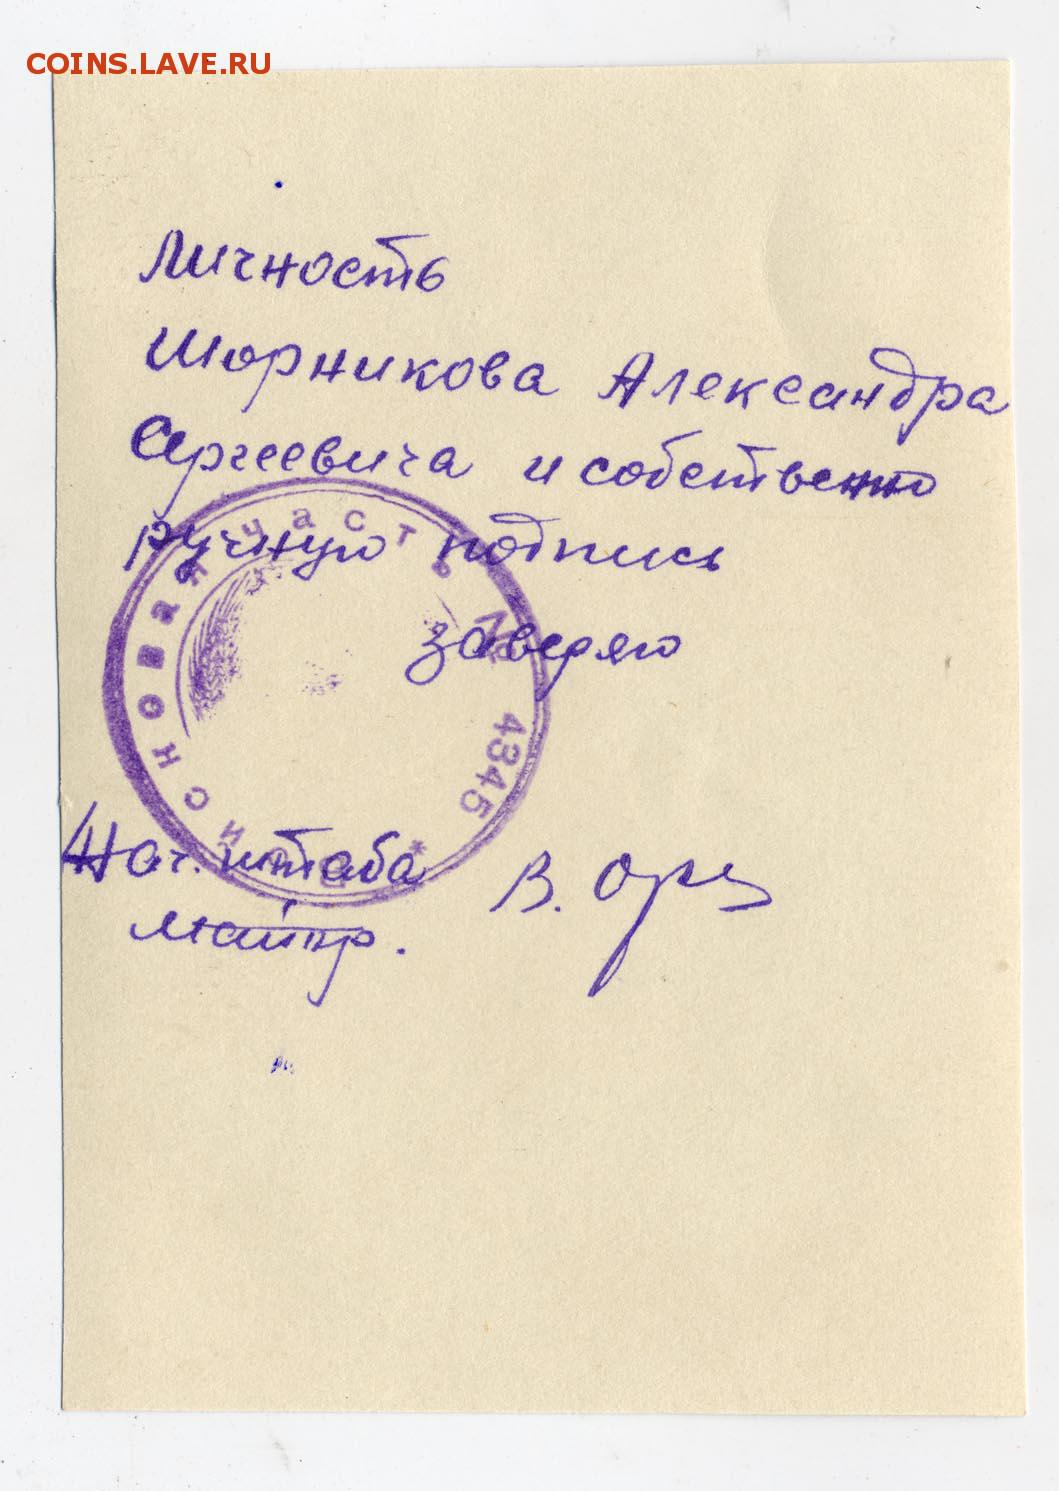 COINS.LAVE.RU
Личность
Шорникова Александра
Сергеевича и собственно
ручную подпись
заверяю
Нач. штаба
майор.
В.
часть № 4345 *